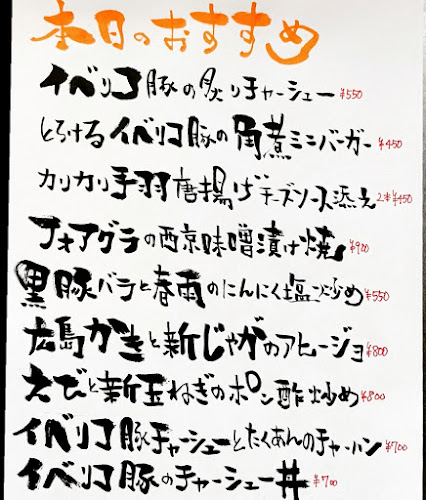 本日のおすすめ
イベリコ豚の炙りチャーシュー ¥550
とろけるイベリコ豚の角煮ミニバーガー ¥450
カリカリ手羽唐揚げチーズソース添え 2本¥450
フォアグラの西京味噌漬け焼 ¥900
黒豚バラと春雨のにんにく塩炒め ¥550
広島かきと新じゃがのアヒージョ ¥800
えびと新玉ねぎのポン酢炒め ¥800
イベリコ豚チャーシューとたくあんのチャーハン ¥700
イベリコ豚のチャーシュー丼 ¥700